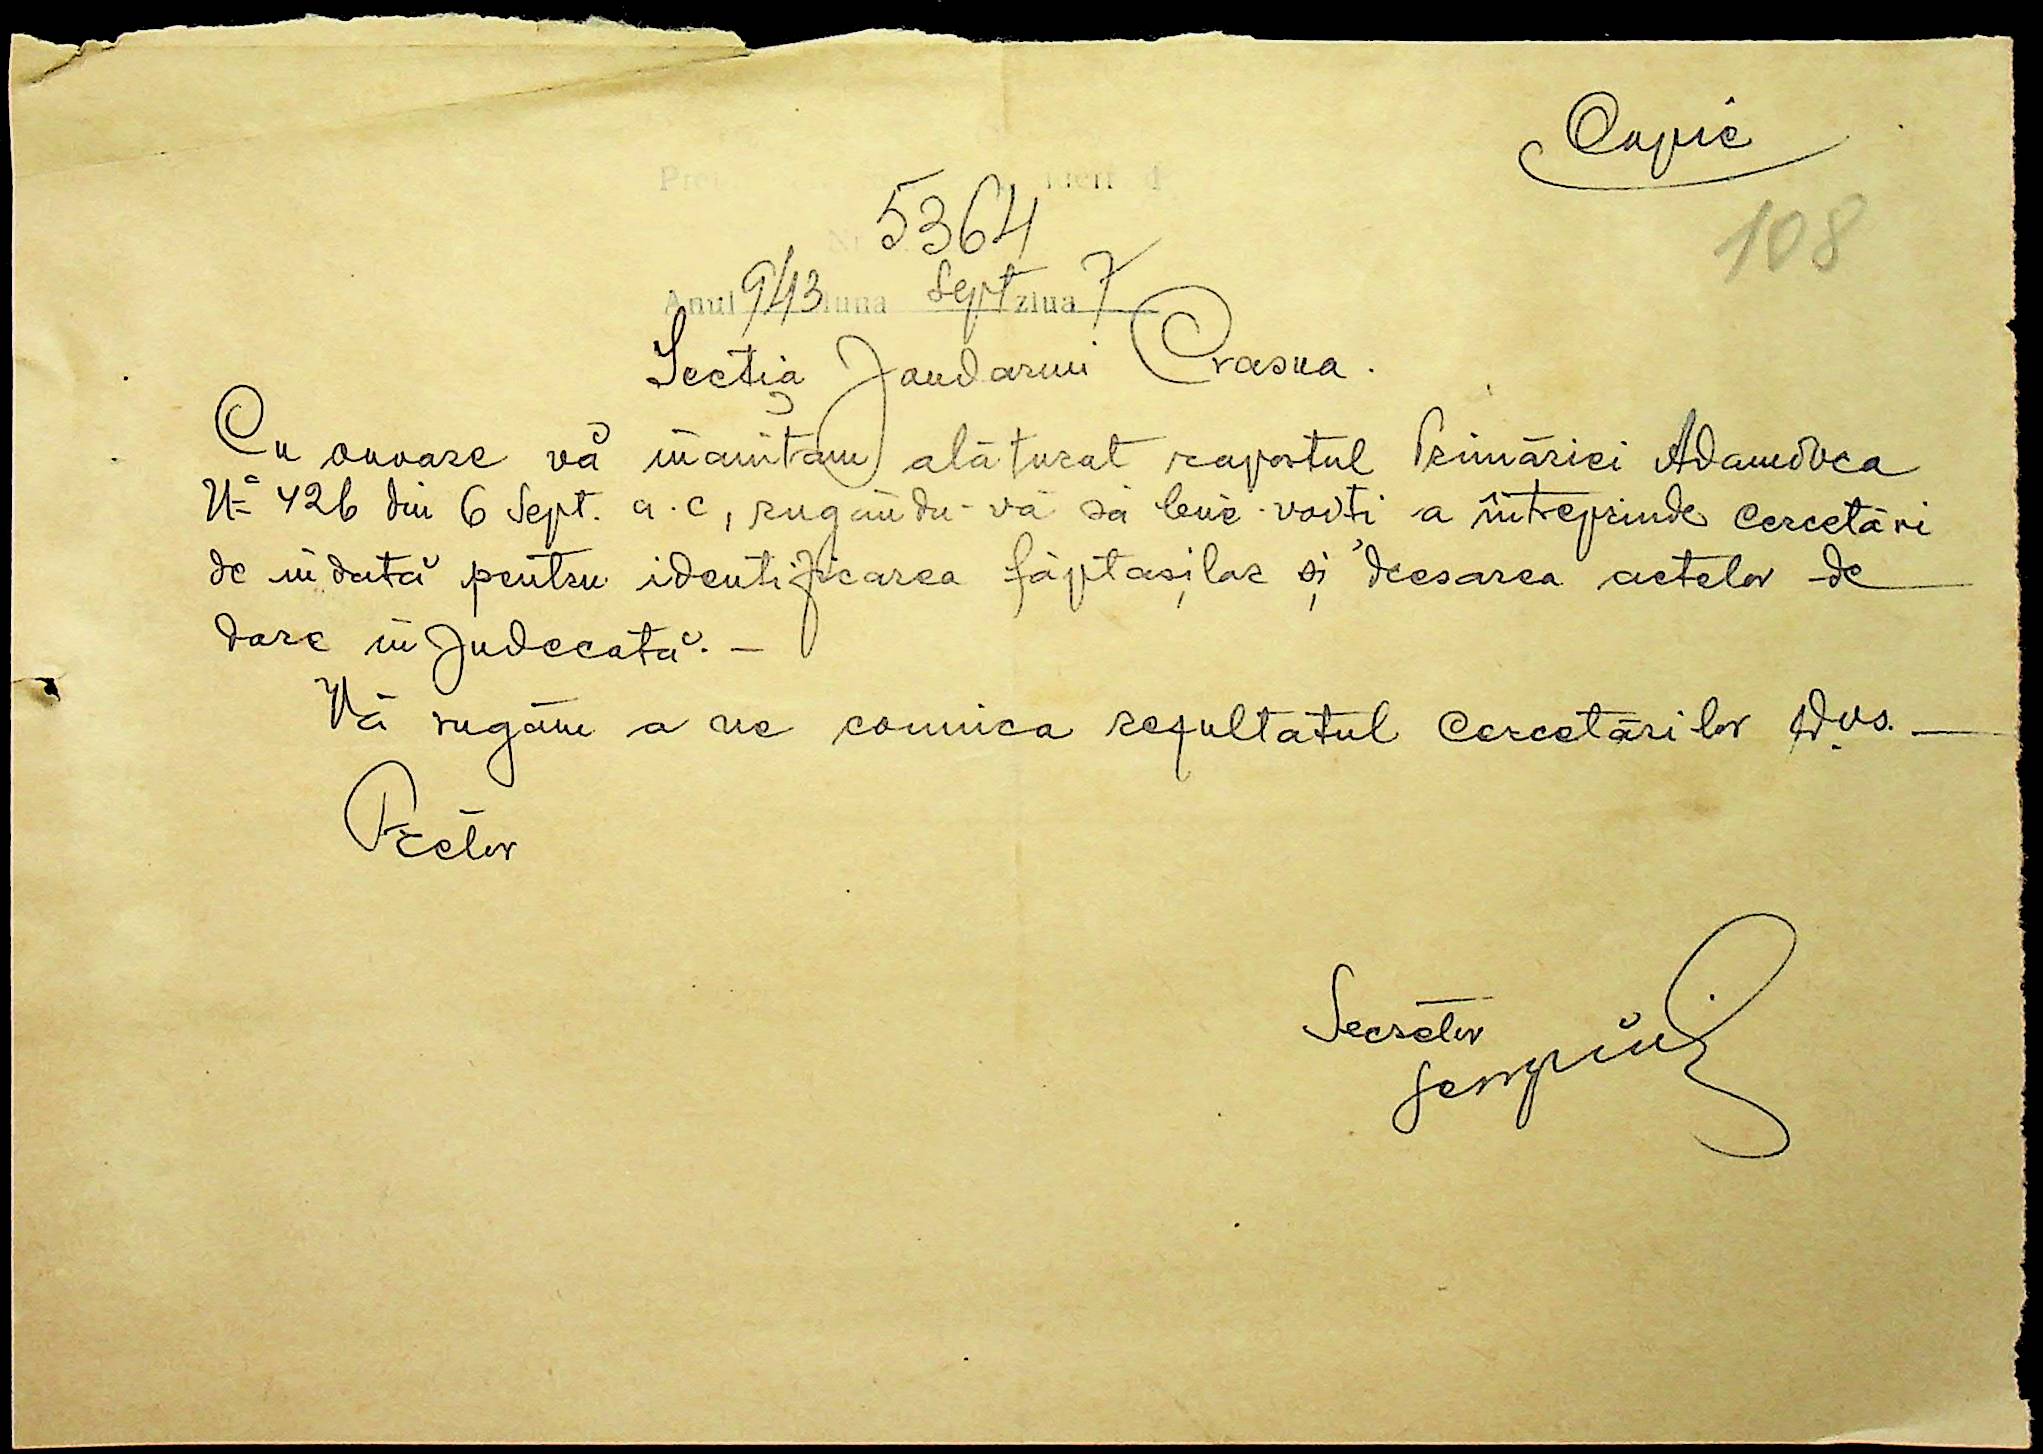 Copie
108
5364
Anul 943 luna Sept ziua 7
Secția Jandarmi Crasna.
Cu onoare vă înaintăm alăturat raportul Primăriei Adamovca
No 426 din 6 Sept. a.c, rugându-vă să bine-voiți a întreprinde cercetări
de îndată pentru identificarea făptașilor și dresarea actelor de
dare în judecată. —
Vă rugăm a ne comnica rezultatul cercetărilor Dvs. —
Pretor
Secretar